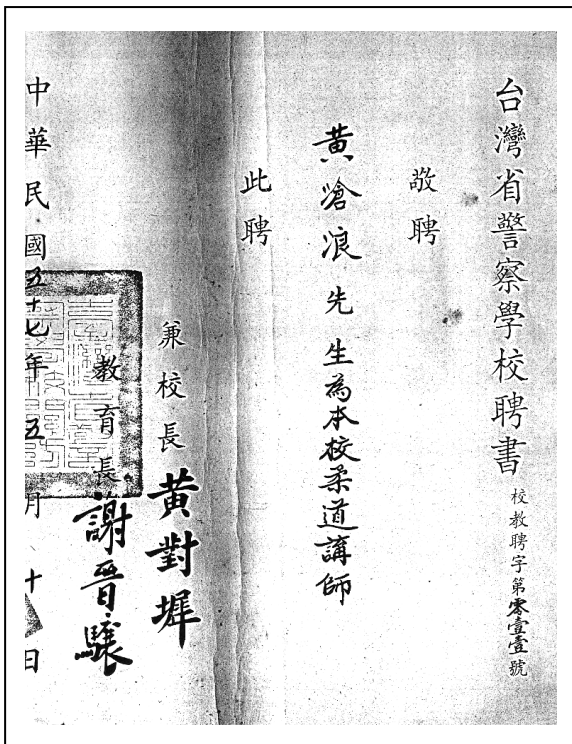 台灣省警察學校聘書
校教聘字第零壹壹號
敬聘
黃滄浪先生為本校柔道講師
此聘
兼校長黃對墀
教育長謝晉驤
中華民國五十七年五月十日